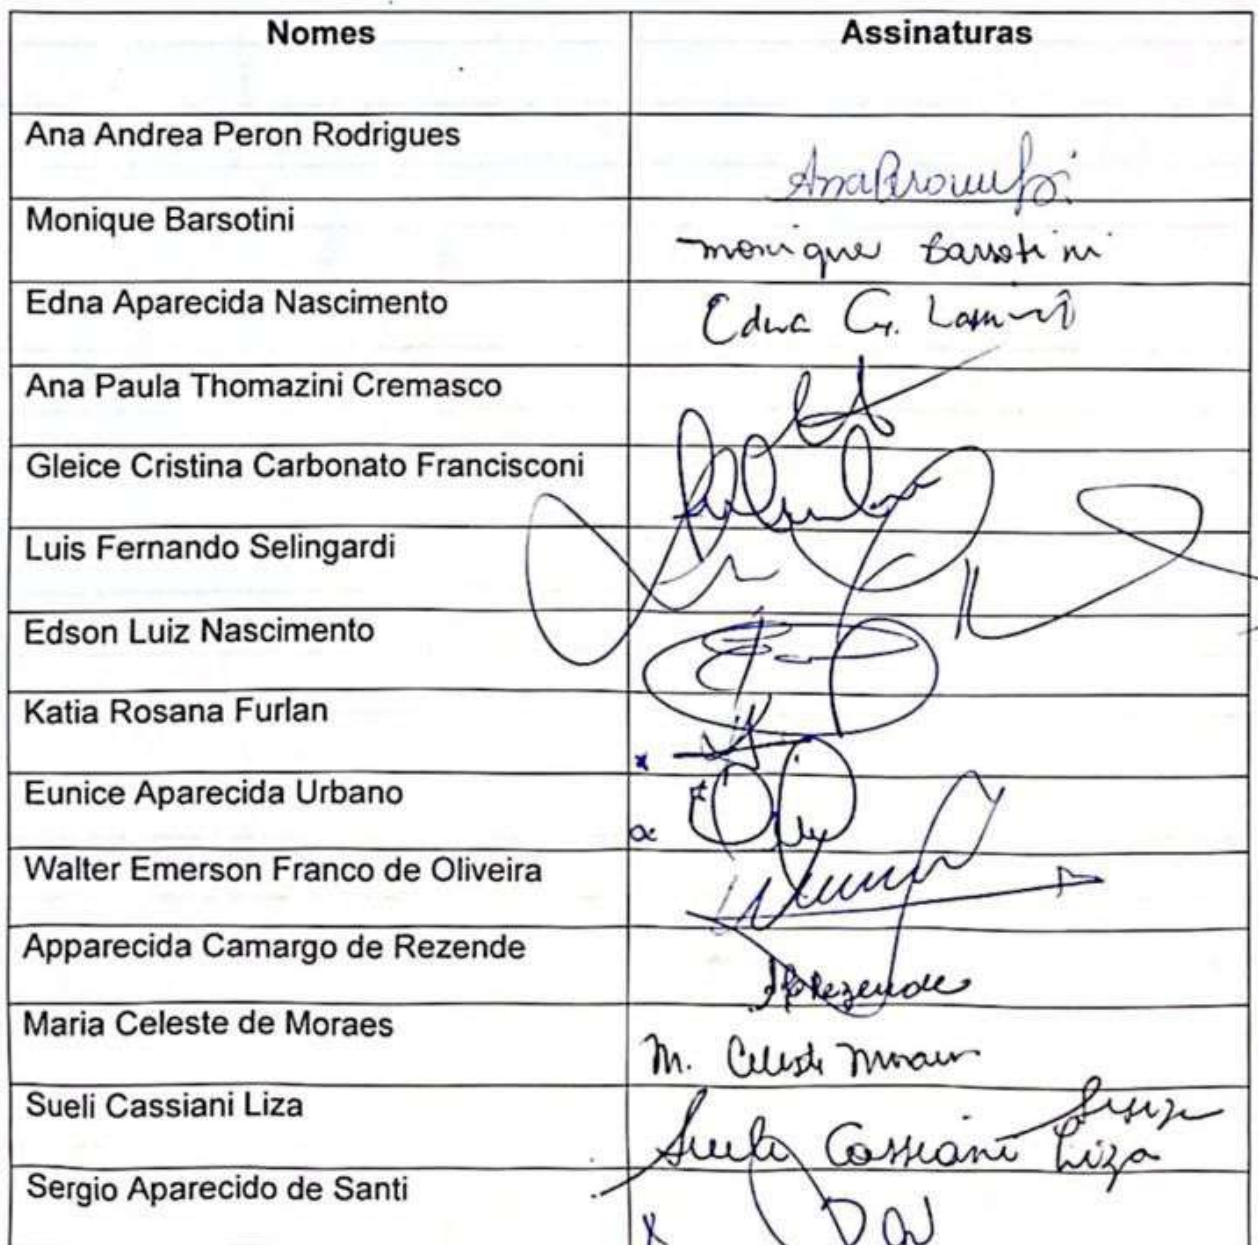 Nomes Assinaturas
Ana Andrea Peron Rodrigues
Monique Barsotini monique Barsotini
Edna Aparecida Nascimento Edna
Ana Paula Thomazini Cremasco
Gleice Cristina Carbonato Francisconi
Luis Fernando Selingardi
Edson Luiz Nascimento
Katia Rosana Furlan x
Eunice Aparecida Urbano
Walter Emerson Franco de Oliveira
Apparecida Camargo de Rezende Rezende
Maria Celeste de Moraes M. Celeste Moraes
Sueli Cassiani Liza Sueli Cassiani Liza
Sergio Aparecido de Santi x